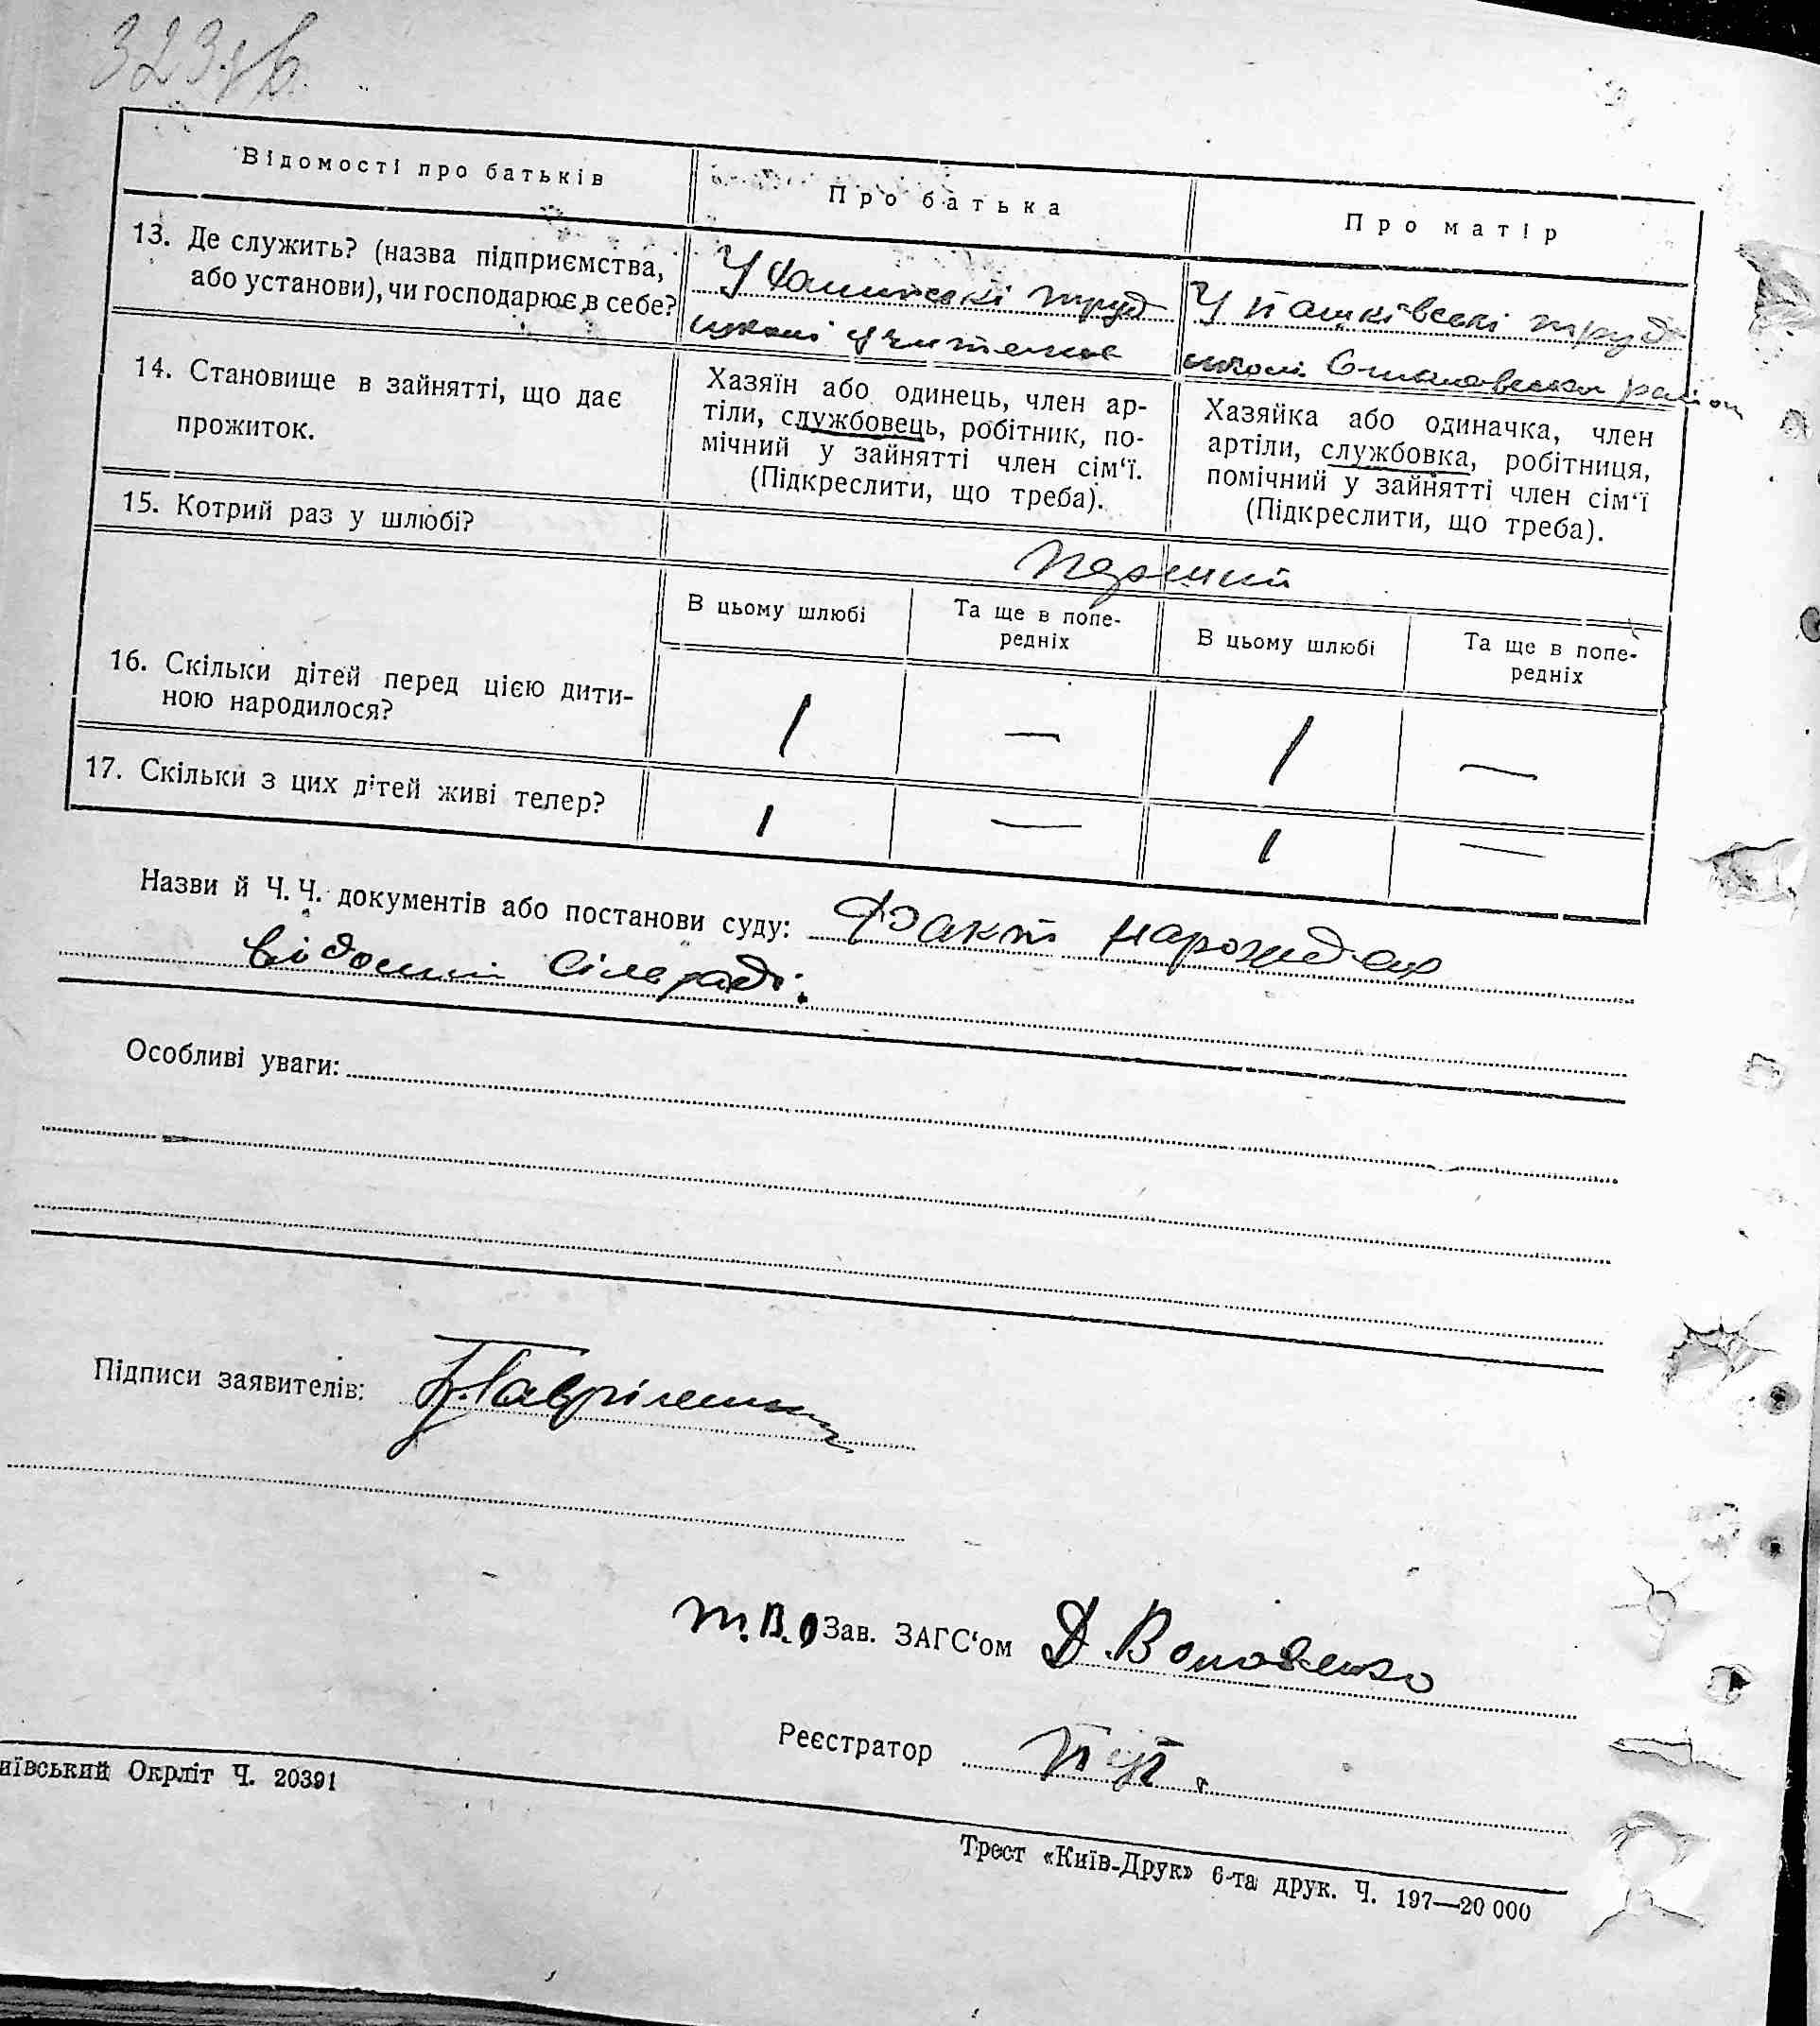 323 зв.
Відомості про батьків
Про батька
Про матір
13. Де служить? (назва підприємства,
або установи), чи господарює в себе?
У труд
школі
У Пашківські труд
школі район
14. Становище в зайнятті, що дає
прожиток.
Хазяїн або одинець, член ар-
тіли, службовець, робітник, по-
мічний у зайнятті член сім‘ї.
(Підкреслити, що треба).
Хазяйка або одиначка, член
артіли, службовка, робітниця,
помічний у зайнятті член сім‘ї
(Підкреслити, що треба).
15. Котрий раз у шлюбі?
Перший
В цьому шлюбі
Та ще в попе-
редніх
В цьому шлюбі
Та ще в попе-
редніх
16. Скільки дітей перед цією дити-
ною народилося?
1 — 1 —
17. Скільки з цих дітей живі тепер?
1 — 1 —
Назви й Ч. Ч. документів або постанови суду: Факт
відомий сільраді.
Особливі уваги:
Підписи заявителів:
т.в.о Зав. ЗАГС‘ом Д.
Реєстратор
иївський Окрліт Ч. 20391
Трест «Київ-Друк» 6-та друк. Ч. 197—20 000